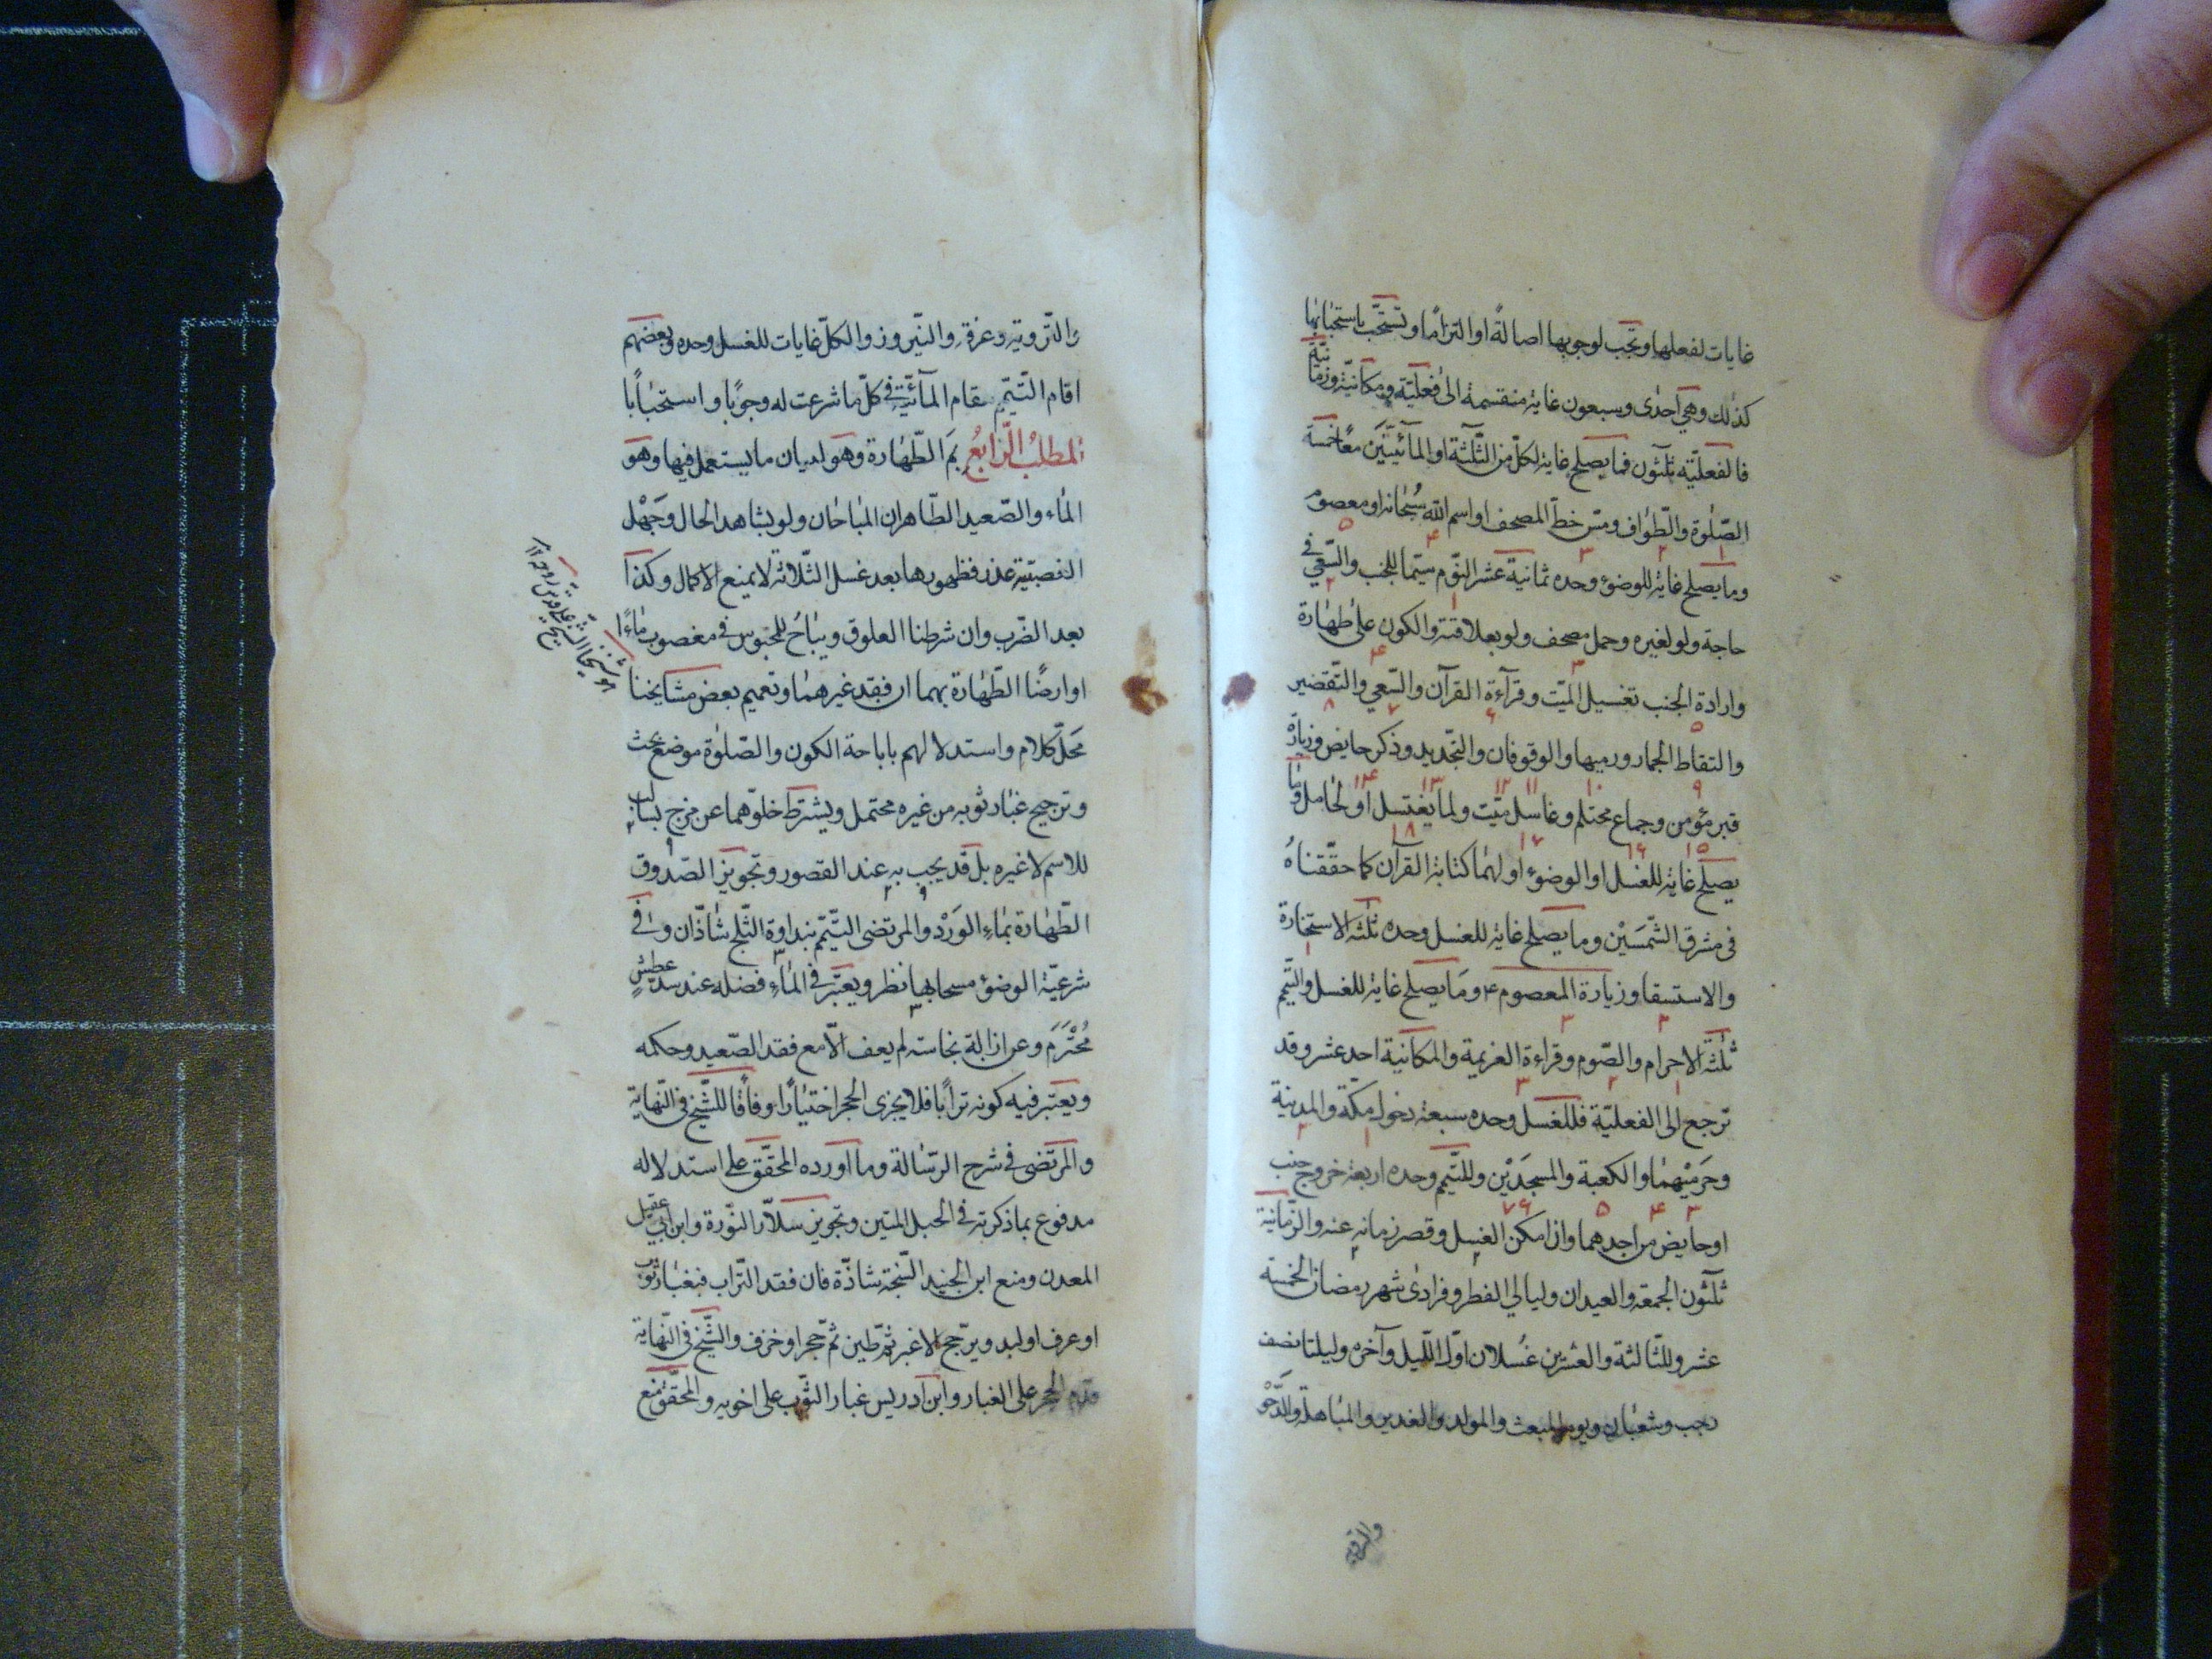 غايات لفعلها وتجب لوجوبها اصالةً او التزامًا وتستحّب باستحبابها
كذلك وهي احدى وسبعون غاية منقسمة الى فعليّة ومكانيّة وزمانيّة
فالفعليّة ثلثون فما يصلح غاية لكلّ من الثّلثة او المآئيّتين معًا خمسة
الصّلوة والطّواف ومسّ خطّ المصحف او اسم الله سُبحانه او معصوم
١ ٢ ٣ ۴ ۵
وما يصلح غاية للوضوء وحده ثمانية عشر النّوم سيّما للجنب والسّعي في
١ ٢
حاجة ولو لغيره وحمل مصحف ولو بعلاقته والكون على طهارة
٣ ۴
وارادة الجنب تغسيل الميّت وقرآءة القرآن والسّعي والتّقصير
۵ ۶ ٧ ٨
والتقاط الجمار ورميها والوقوفان والتّجديد وذكر حايض وزيارة
٩ ١٠ ١١ ١٢ ١٣ ١۴
قبر مؤمن وجماع محتلم وغاسل ميّت ولمّا يغتسل او لحامل وما
١۵ ١۶ ١٧ ١٨
يصلح غاية للغسل او الوضوء او لهما كتابة القرآن كما حقّقناهُ
في مشرق الشّمسَيْن وما يصلح غاية للغسل وحده ثلثة الاستخارة
١
والاستسقا وزيارة المعصوم ع وما يصلح غاية للغسل والتّيمّم
٢ ٣
ثلثة الاحرام والصّوم وقراءة العزيمة والمكانية احد عشر وقد
١ ٢ ٣
ترجع الى الفعليّة فللغسل وحده سبعة دخول مكّة والمدينة
١ ٢
وحَرَميْهما والكعبة والمسجدَيْن وللتّيمّم وحده اربعة خروج جنب
٣ ۴ ۵ ۶ ٧
او حايض من احدهما وان امكن الغسل وقصر زمانه عنه والزّمانية
ثلثون الجمعة والعيدان وليالي الفطر وفرادى شهر رمضان الخمسة
عشر وللثالثة والعشرين غُسلان اوّل اللّيل وآخره وليلتا نصف
رجب وشعبان ويوم المبعث والمولد والغدير والمباهلة والدَّحْو
والتروية
والتّروية وعرفة والنّيروز والكلّ غايات للغسل وحده وبعضهم
اقام التّيمّم مقام المآئيّة في كلّ ما شرعت له وجوبًا واستحبابًا
المطلبُ الرّابعُ بِمَ الطّهارة وهو لبيان ما يستعمل فيها وهو
الماء والصّعيد الطّاهران المباحان ولو بشاهد الحال وجَهْل
الغصبيّة عذر فظهورها بعد غسل الثّلاثة لا يمنع الاكمال وكذا
بعد الضّرب وان شرطنا العلوق ويباحُ للمحبوس في مغصوب ماءً
او ارضًا الطّهارة بهما ان فقد غيرهما وتعميم بعض مشايخنا
محَلّ كلام واستدلالهم باباحة الكون والصّلوة موضع بحث
وترجيح غبار ثوبه من غيره محتمل ويشترط خلوّهما عن مزج سالب
للاسم لا غيره بل قد يجب به عند القصور وتجويز الصّدوق
الطّهارة بماءِ الوَرْد والمرتضى التيّمّم بنداوة الثّلج شاذّان وفي
شرعيّة الوضوء مسحا بها نظر ويعتبر في الماءِ فضله عند سدّ عطش
مُحْتَرَم وعن ازالة نجاسة لم يعف الّا مع فقد الصّعيد وحكمه
ويعتبر فيه كونه ترابًا فلا يجزى الحجر اختيارًا وفاقًا للشّيخ في النّهاية
والمرتضى في شرح الرّسالة وما اورده المحقّق على استدلاله
مدفوع بما ذكرته في الحبل المتين وتجويز سلّار النّورة وابن ابي عقيل
المعدن ومنع ابن الجنيد السّبخة شاذّة فان فقد التّراب فبغبار ثوب
او عرف او لبد ويرجّح الاغبر ثمّ طين ثمّ حجر او خزف والشّيخ في النّهاية
قدّم الحجر على الغبار وابن ادريس غبار الثّوب على اخويه والمحقّق منع